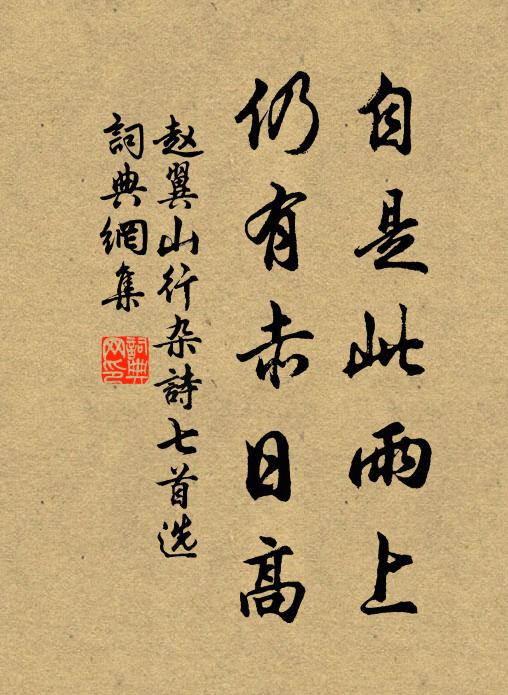 自是此雨上
仍有赤日高
赵翼山行杂詩七首选
詞典網集
詞典网印